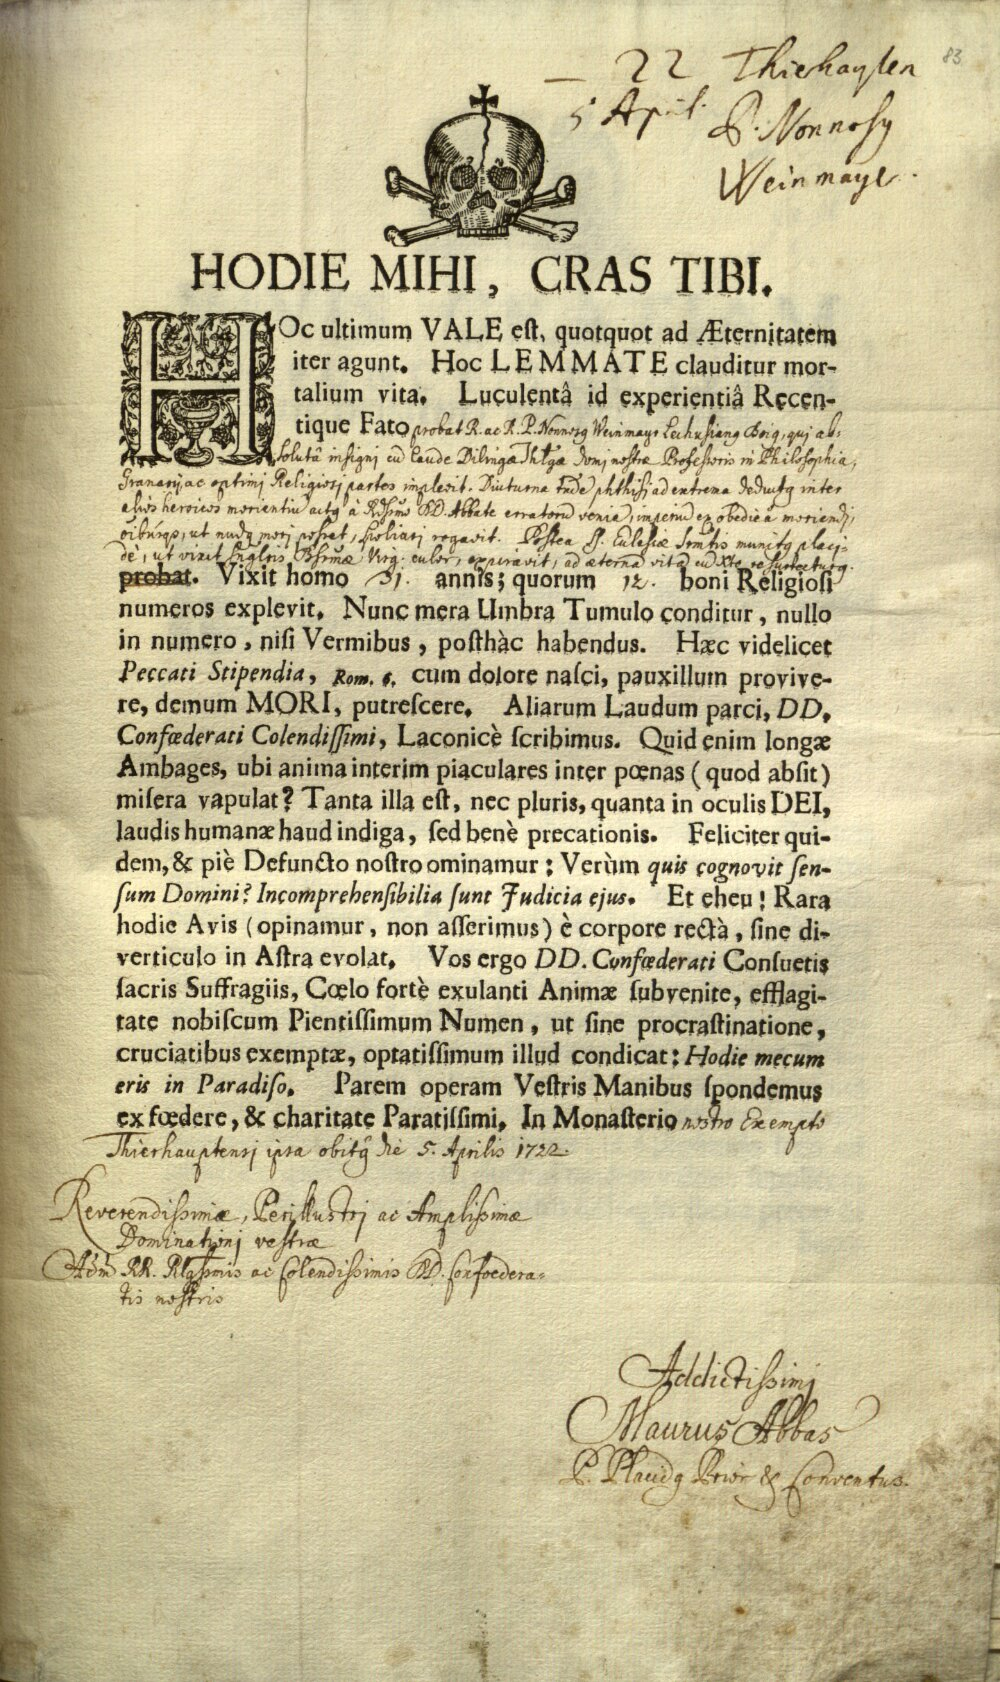 83
22 Thierhaupten
5 April. P. Nonnosy
Weinmayr.
HODIE MIHI, CRAS TIBI.
HOc ultimum VALE eſt, quotquot ad Æternitatem
iter agunt. Hoc LEMMATE clauditur mor-
talium vita. Luculentâ id experientiâ Recen-
tique Fato probat R. ac R. P. Nonnosg Weinmayr Boig, quj ab-
solutâ insignj cũ laude Dilingæ domj nostræ Professoris in Philosophia,
Granarij, ac optimj Religiosj partes implevit. Diuturna phthisj ad extrema deductg inter
alios heroicos morientiũ actg à Rdsimo D. Abbate erratorũ veniã, imperiũ ex obediẽâ moriendj,
ut nudg morj posset, spoliarj rogavit. Postea SS. Eclesiæ munitg placj-
dè, ut vixit Virg. cultor, expiravit, ad æternã vitã cũ Xto resurrecturg.
probat. Vixit homo 31. annis; quorum 12. boni Religioſi
numeros explevit. Nunc mera Umbra Tumulo conditur, nullo
in numero, niſi Vermibus, poſthàc habendus. Hæc videlicet
Peccati Stipendia, Rom. 6. cum dolore naſci, pauxillum provive-
re, demum MORI, putreſcere. Aliarum Laudum parci, DD.
Confœderati Colendiſſimi, Laconicè ſcribimus. Quid enim longæ
Ambages, ubi anima interim piaculares inter pœnas (quod abſit)
miſera vapulat? Tanta illa eſt, nec pluris, quanta in oculis DEI,
laudis humanæ haud indiga, ſed benè precationis. Feliciter qui-
dem, & piè Defuncto noſtro ominamur: Verùm quis cognovit ſen-
ſum Domini? Incomprehenſibilia ſunt Judicia ejus. Et eheu! Rara
hodie Avis (opinamur, non aſſerimus) è corpore rectà, ſine di-
verticulo in Aſtra evolat. Vos ergo DD. Confœderati Conſuetis
ſacris Suffragiis, Cœlo fortè exulanti Animæ ſubvenite, efflagi-
tate nobiſcum Pientiſſimum Numen, ut ſine procraſtinatione,
cruciatibus exemptæ, optatiſſimum illud condicat: Hodie mecum
eris in Paradiſo. Parem operam Veſtris Manibus ſpondemus
ex fœdere, & charitate Paratiſſimi. In Monaſterio nostro Exempto
Thierhauptensj ipsa obitg die 5. Aprilis 1722.
Reverendissimæ, Perillustrj ac Amplissimæ
Dominationj vestræ
Adm̃ RR. Rlgsimis ac Colendissimis DD. Confoedera-
tis nostris
Addictissimj
Maurus Abbas
P. Placidg Prior & Conventus.